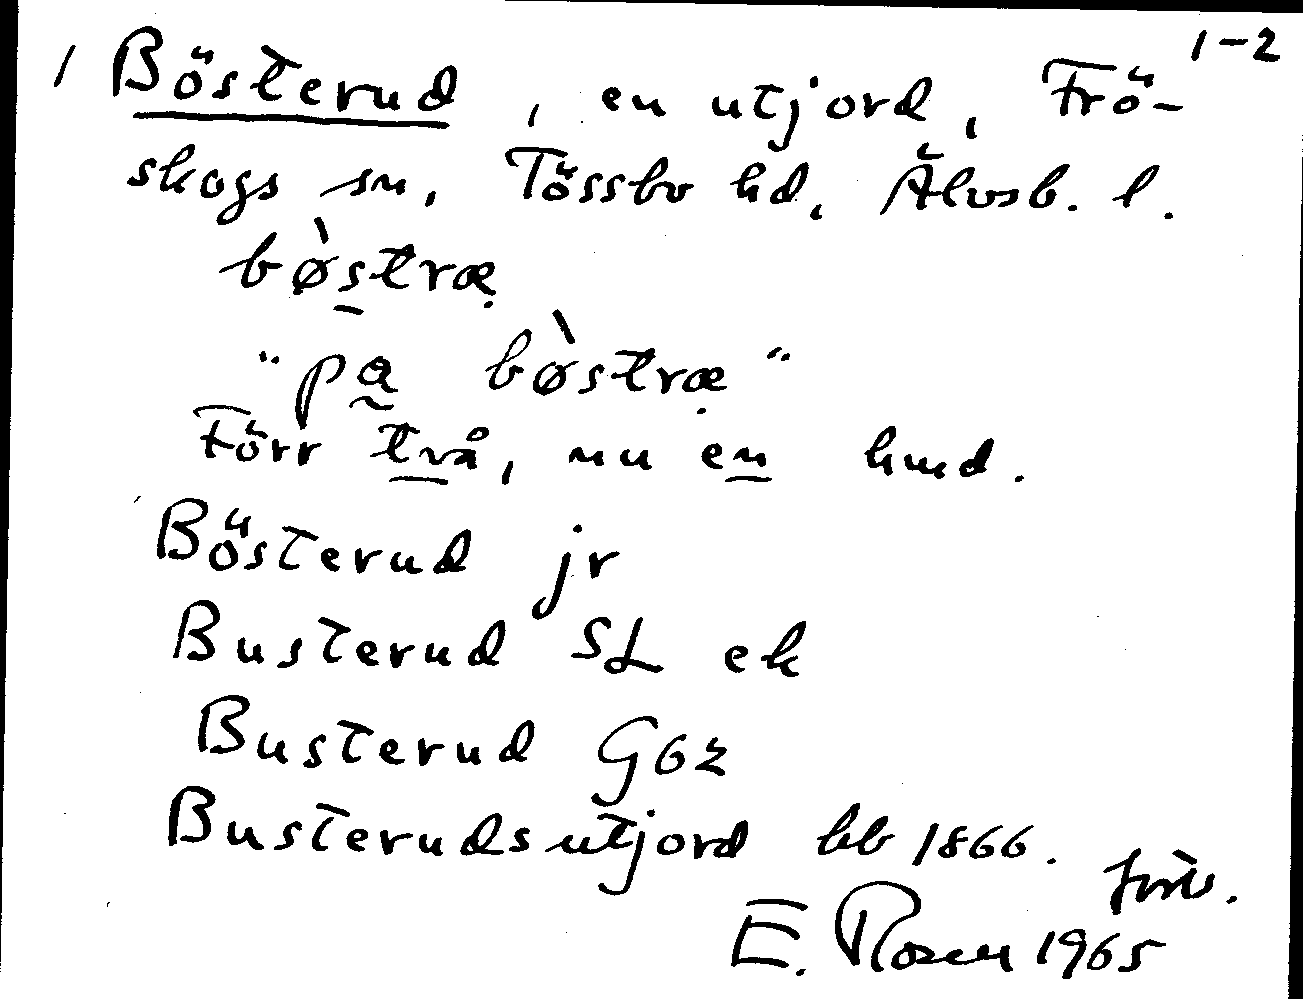 1-2
1 Bösterud, en utjord, Frö-
skogs sn, Tössbo hd, Älvsb. l.
bø̀stræ
"pa bø̀stræ"
Förr två, nu en hmd.
Bösterud jr
Busterud SL ek
Busterud G62
Busterudsutjord hb 1866.
forts.
E. Rosen 1965